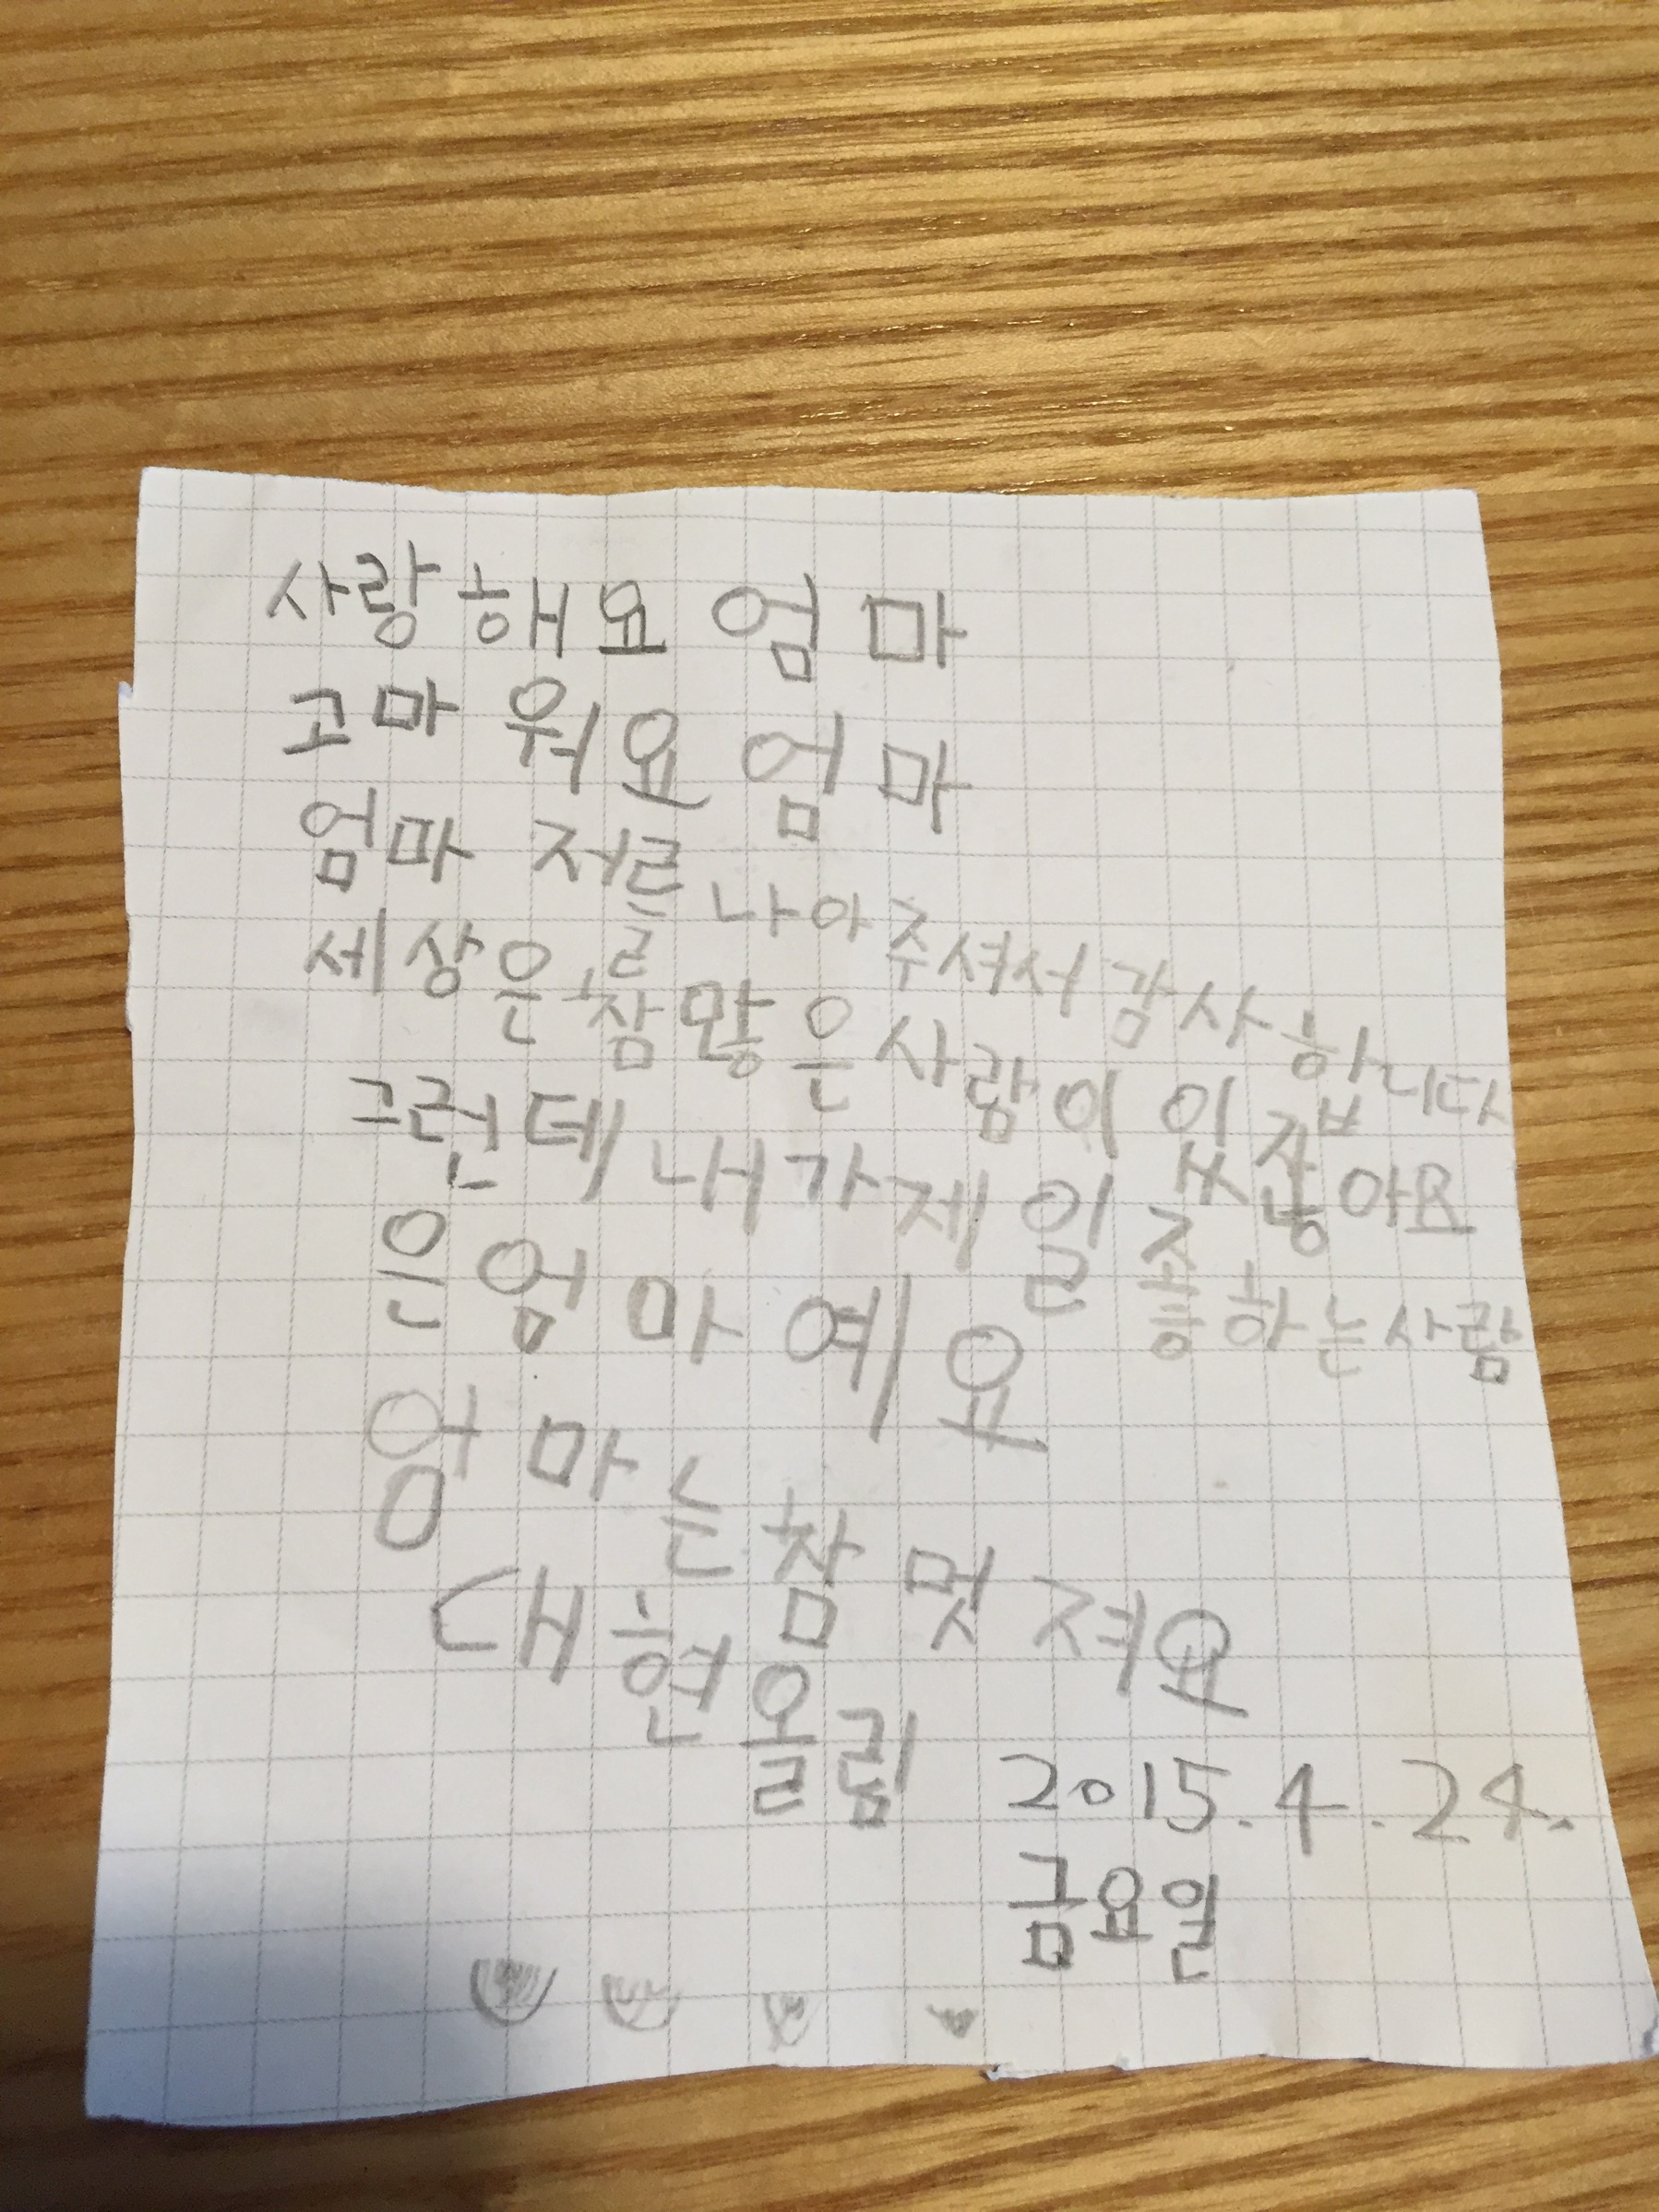 사랑해요 엄마
고마워요 엄마
엄마 저를 나아 주셔서 감사합니다
세상은 참 많은 사람이 있잖아요
그런데 내가 제일 좋하는 사람
은 엄마예요
엄마는 참 멋져요
대현 올림
2015.4.24.
금요일